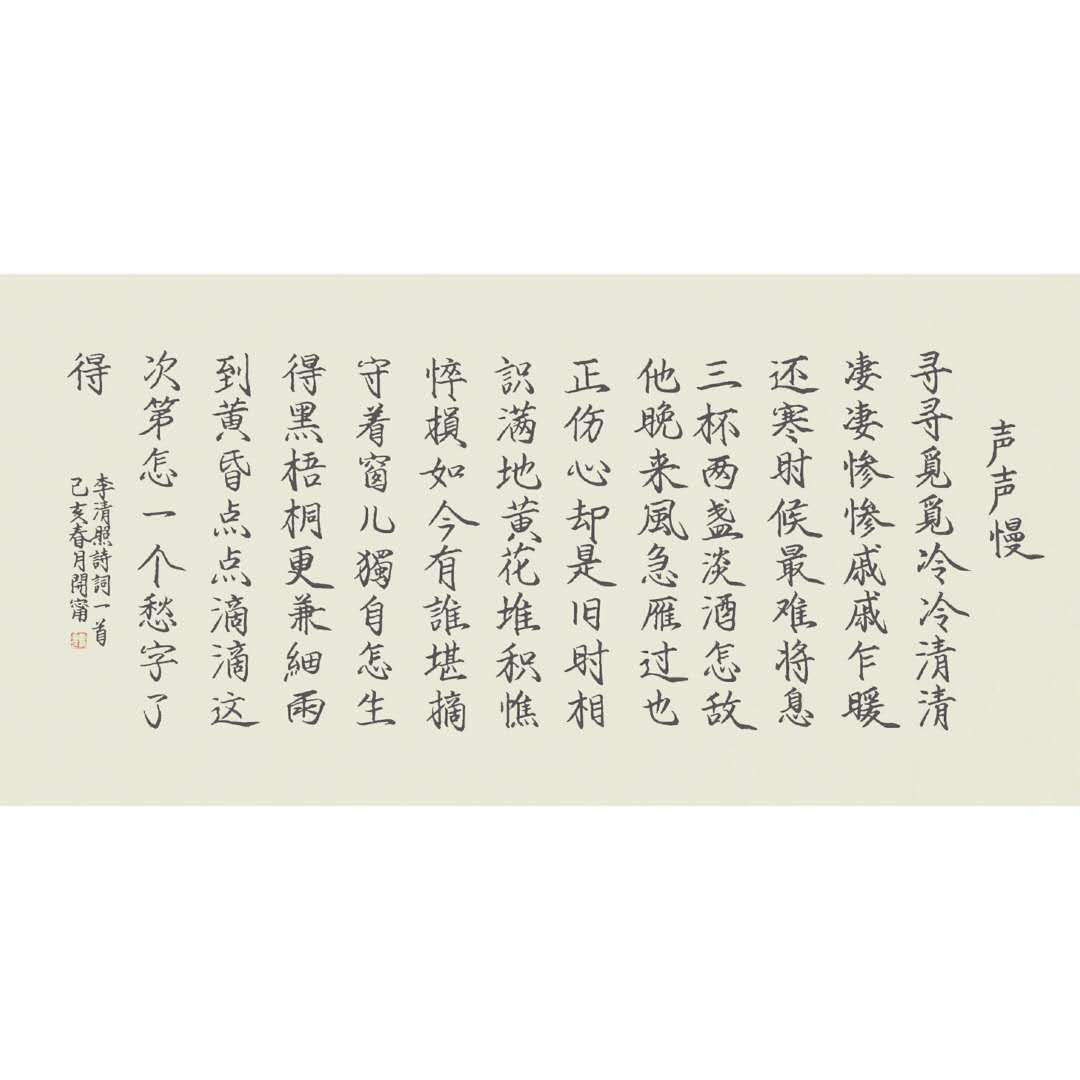 声声慢
寻寻覓覓冷冷清清
凄凄惨惨戚戚乍暖
还寒时候最难将息
三杯两盏淡酒怎敌
他晚来風急雁过也
正伤心却是旧时相
识满地黄花堆积憔
悴損如今有誰堪摘
守着窗儿獨自怎生
得黑梧桐更兼細雨
到黄昏点点滴滴这
次第怎一个愁字了
得
李清照詩詞一首
己亥春月開甯